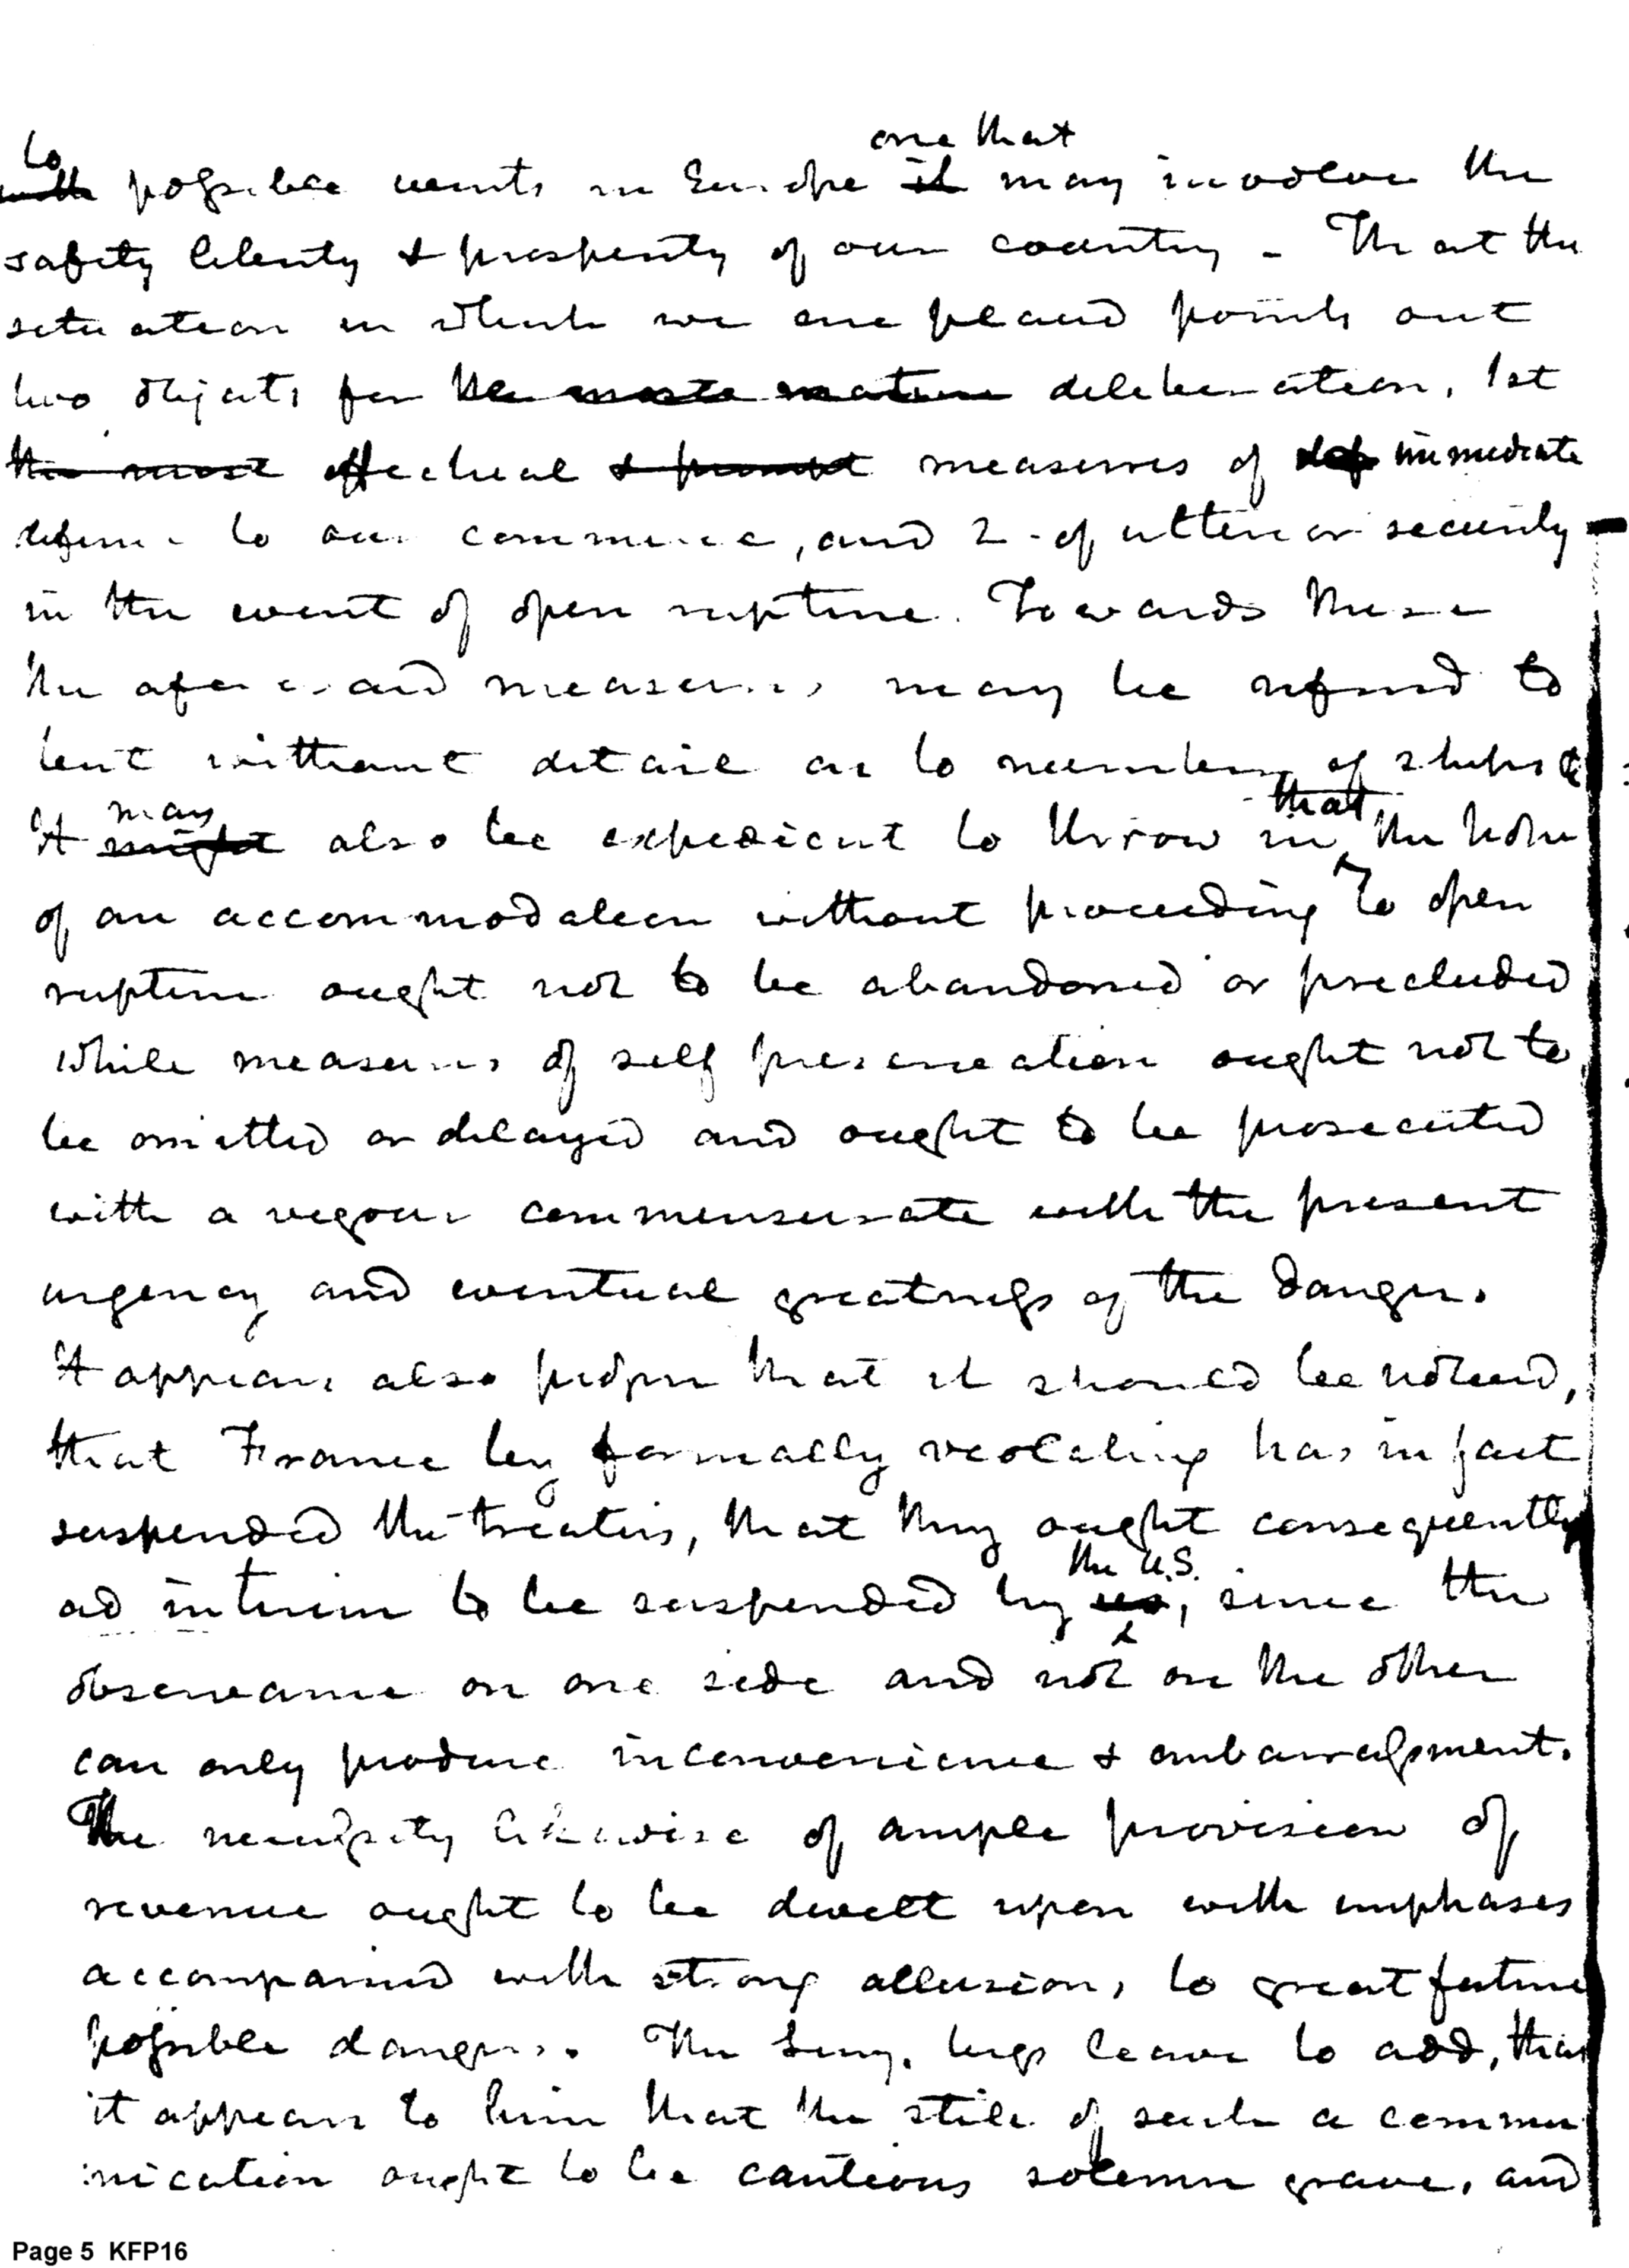 one that
to
with possible events in Europe it may involve the
safety liberty & prosperity of our country - That the
situation in which we are placed points out
two objects for the most mature deliberation, 1st
the most effectual & prompt measures of def immediate
defence to our commerce, and 2 - of ulterior security
in the event of open rupture. Towards these
the aforesaid measures may be referred to
but without detail as to numbers of ships &
may that
It might also be expedient to throw in the hope
of an accommodation without proceeding to open
rupture ought not to be abandoned or precluded
while measures of self preservation ought not to
be omitted or delayed and ought to be prosecuted
with a vigour commensurate with the present
urgency and eventual greatness of the danger.
It appears also proper that it should be noticed,
that France by formally violating has in fact
suspended the treaties, that they ought consequently
the U.S.
ad interim to be suspended by us, since the
observance on one side and not on the other
can only produce inconvenience & embarrassment.
The necessity likewise of ample provision of
revenue ought to be dwelt upon with emphases
accompanied with strong allusions to great future
possible dangers. The Secy. begs leave to add, that
it appears to him that the stile of such a commu
nication ought to be cautious solemn grave, and
Page 5 KFP16